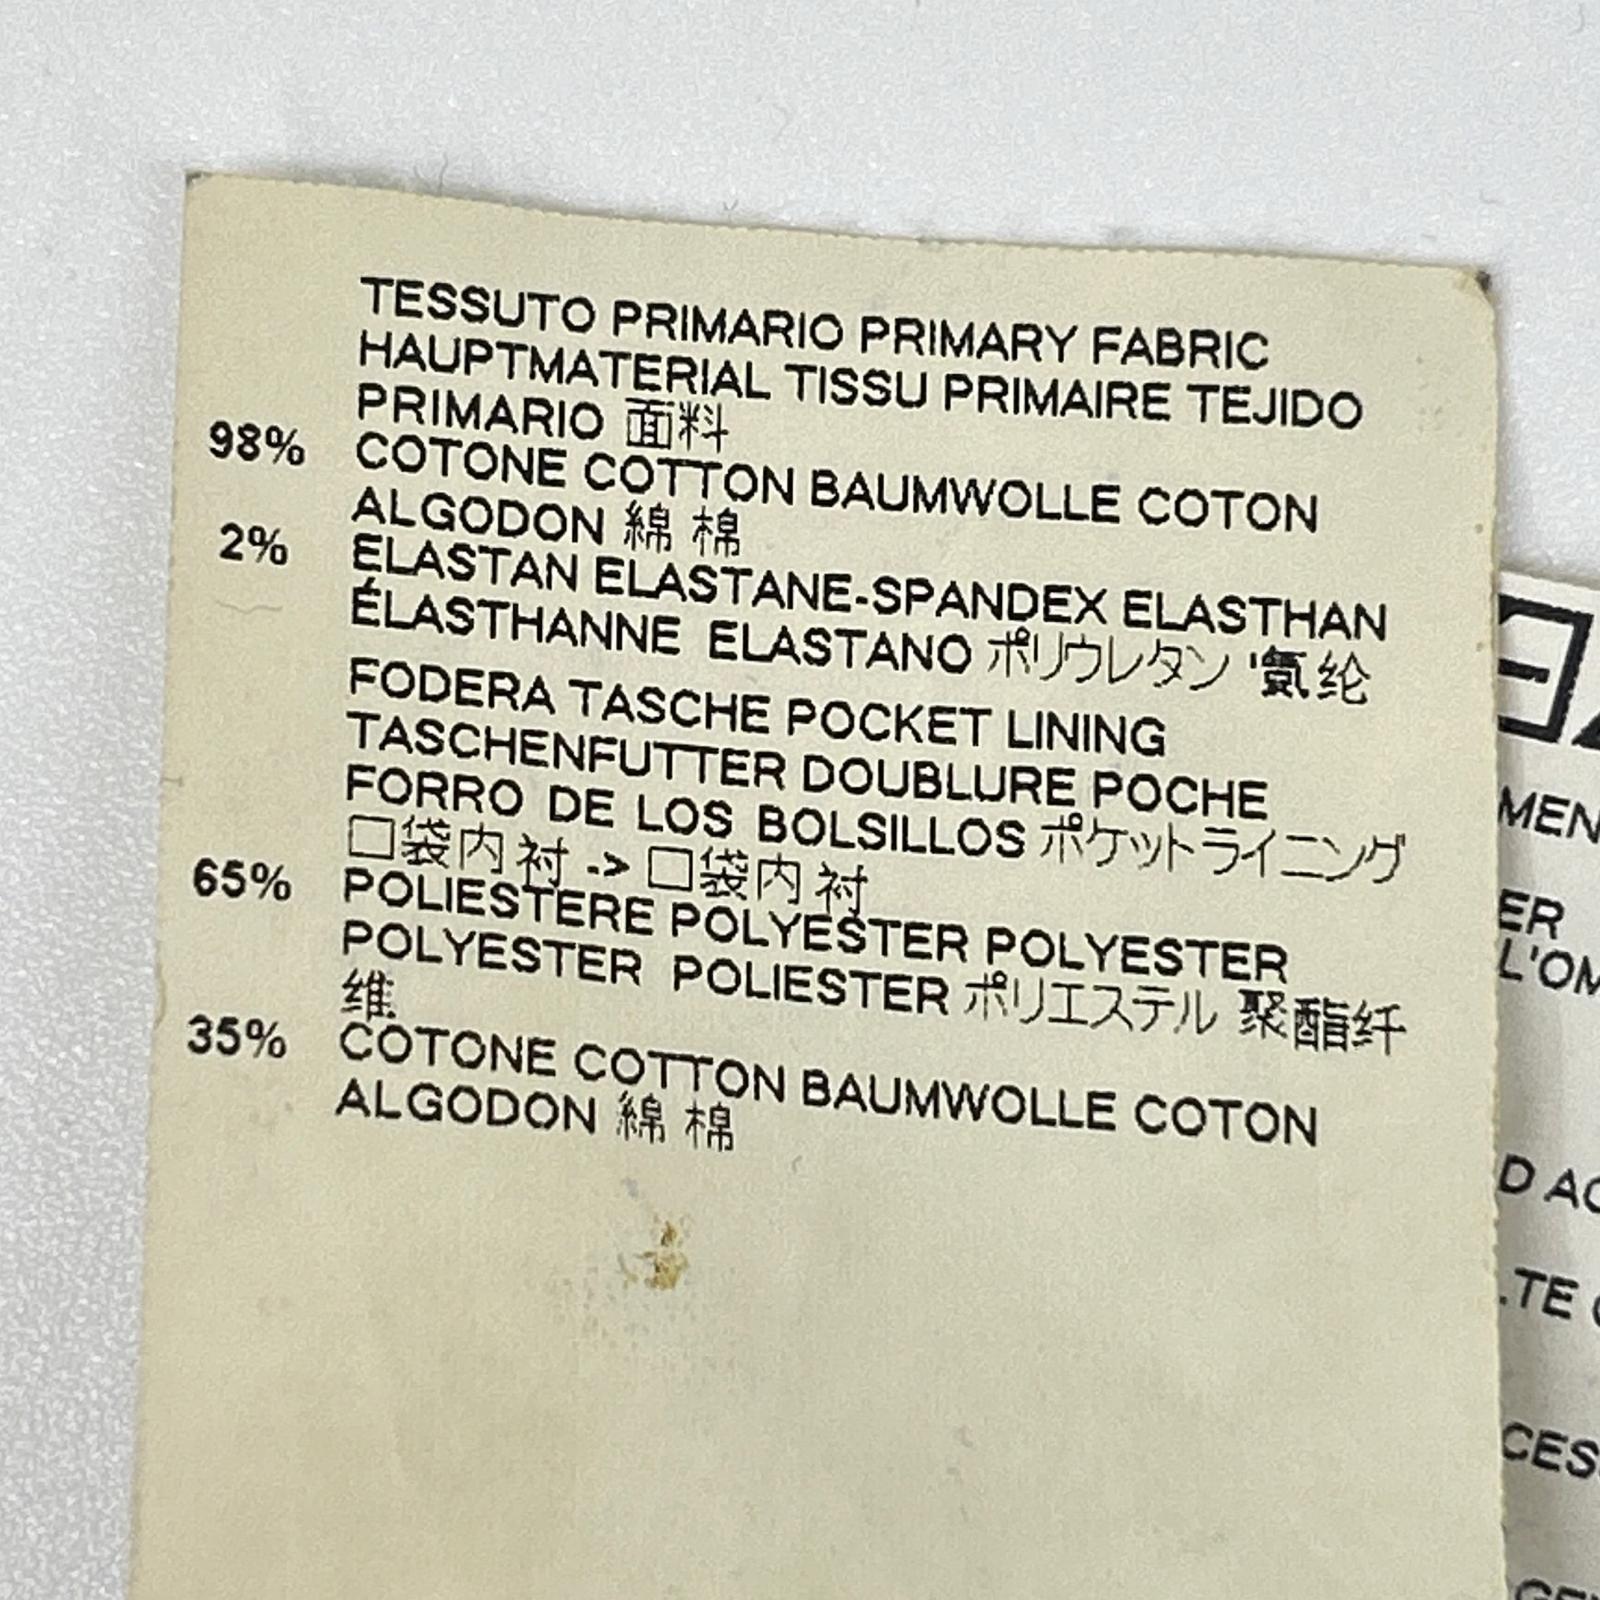 TESSUTO PRIMARIO PRIMARY FABRIC
HAUPTMATERIAL TISSU PRIMAIRE TEJIDO
PRIMARIO 面料
98% COTONE COTTON BAUMWOLLE COTON
ALGODON 綿 棉
2% ELASTAN ELASTANE-SPANDEX ELASTHAN
ÉLASTHANNE ELASTANO ポリウレタン '氨纶
FODERA TASCHE POCKET LINING
TASCHENFUTTER DOUBLURE POCHE
FORRO DE LOS BOLSILLOS ポケットライニング
口袋内衬 -> 口袋内衬
65% POLIESTERE POLYESTER POLYESTER
POLYESTER POLIESTER ポリエステル 聚酯纤
维
35% COTONE COTTON BAUMWOLLE COTON
ALGODON 綿 棉
MEN
ER
L'OM
D AC
.TE
CES